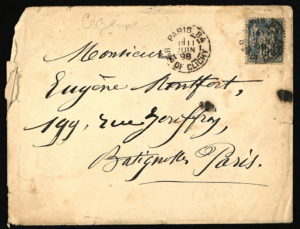 PARIS 84
11
JUIN
98
Bd DE CLICHY
Monsieur
Eugène Montfort,
199, rue Jouffroy,
Batignolles Paris.